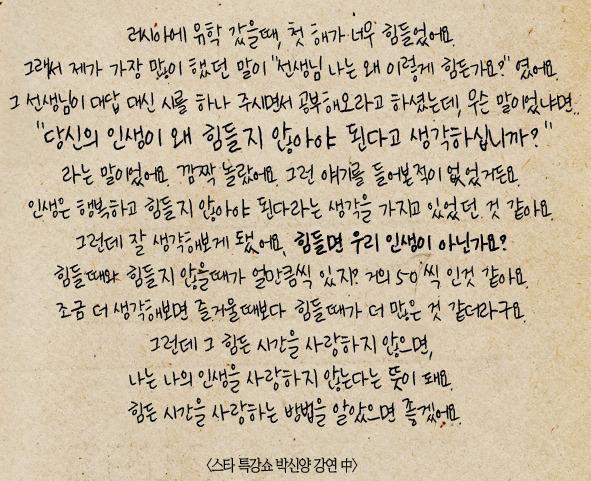 러시아에 유학 갔을때, 첫 해가 너무 힘들었어요.
그래서 제가 가장 많이 했던 말이 "선생님 나는 왜 이렇게 힘든가요?" 였어요.
그 선생님이 대답 대신 시를 하나 주시면서 공부해오라고 하셨는데, 무슨 말이었냐면..
"당신의 인생이 왜 힘들지 않아야 된다고 생각하십니까?"
라는 말이었어요. 깜짝 놀랐어요. 그런 얘기를 들어본적이 없었거든요.
인생은 행복하고 힘들지 않아야 된다라는 생각을 가지고 있었던 것 같아요.
그런데 잘 생각해보게 됐어요. 힘들면 우리 인생이 아닌가요?
힘들때와 힘들지 않을때가 얼만큼씩 있지? 거의 50씩 인것 같아요.
조금 더 생각해보면 즐거울때보다 힘들때가 더 많은 것 같더라구요.
그런데 그 힘든 시간을 사랑하지 않으면,
나는 나의 인생을 사랑하지 않는다는 뜻이 돼요.
힘든 시간을 사랑하는 방법을 알았으면 좋겠어요.
<스타 특강쇼 박신양 강연 中>